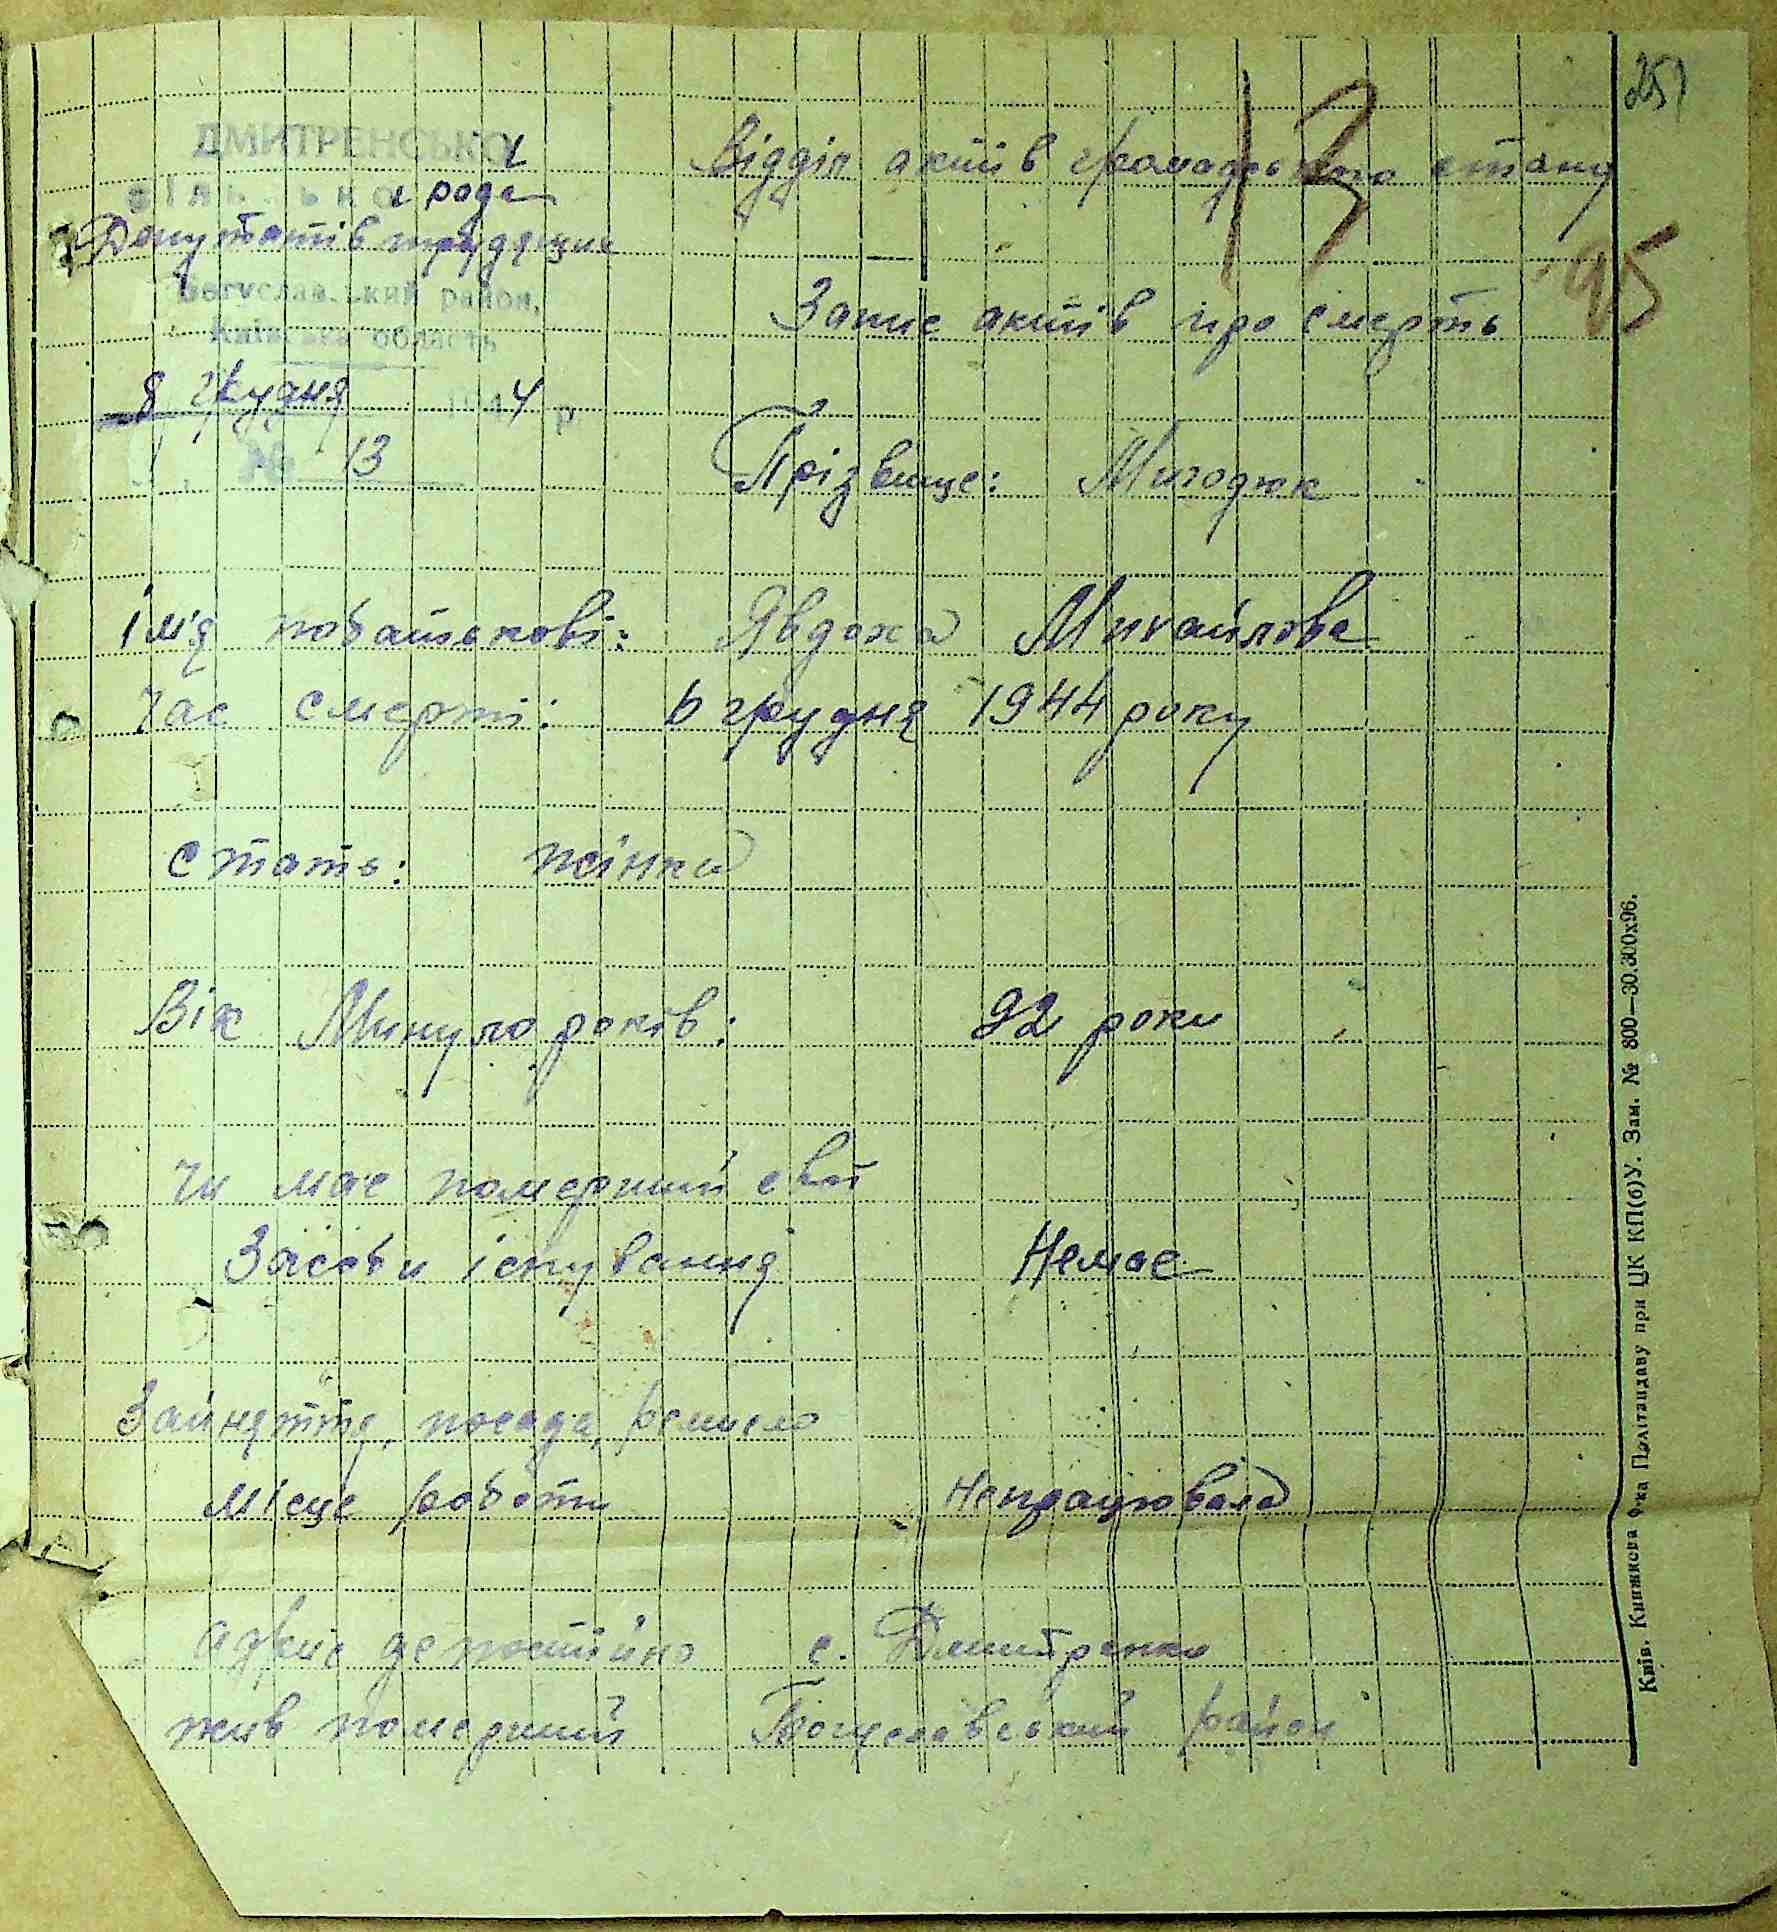 251
ДМИТРЕНСЬКА
сільська рада
Депутатів трудящих
Богуславський район,
Київська область
8 грудня 1944 р.
№ 13
Відділ актів громадського стану
13
95
Запис актів про смерть
Прізвище: Мигодюк
Ім'я побатькові: Явдоха Михайлова
Час смерті: 6 грудня 1944 року
Стать: жінка
Вік Минуло років: 92 роки
Чи має померший свої
Засоби існування Немає
Зайняття, посада, ремесло
Місце роботи Непрацювала
адрес де постійно с. Дмитренки
жив померший Богуславський район
Київ. Книжкова ф-ка Політвидаву при ЦК КП(б)У. Зам. № 800—30.300х96.